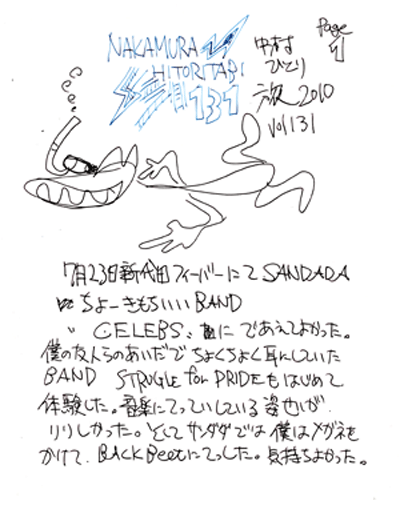 Page
1
NAKAMURA
HITORITABI
131
中村
ひとり
旅 2010
Vol 131
7月23日新代田フィーバーにて SANDADA
ちょーきもちいい BAND
CELEBS、 にであえてよかった。
僕の友人らのあいだでちょくちょく耳にしていた
BAND STRUGLE for PRIDEもはじめて
体験した。音楽にてっていしている姿也が
りりしかった。そしてサンダダでは僕はメガネを
かけて、BACK Beetにてっした。気持ちよかった。